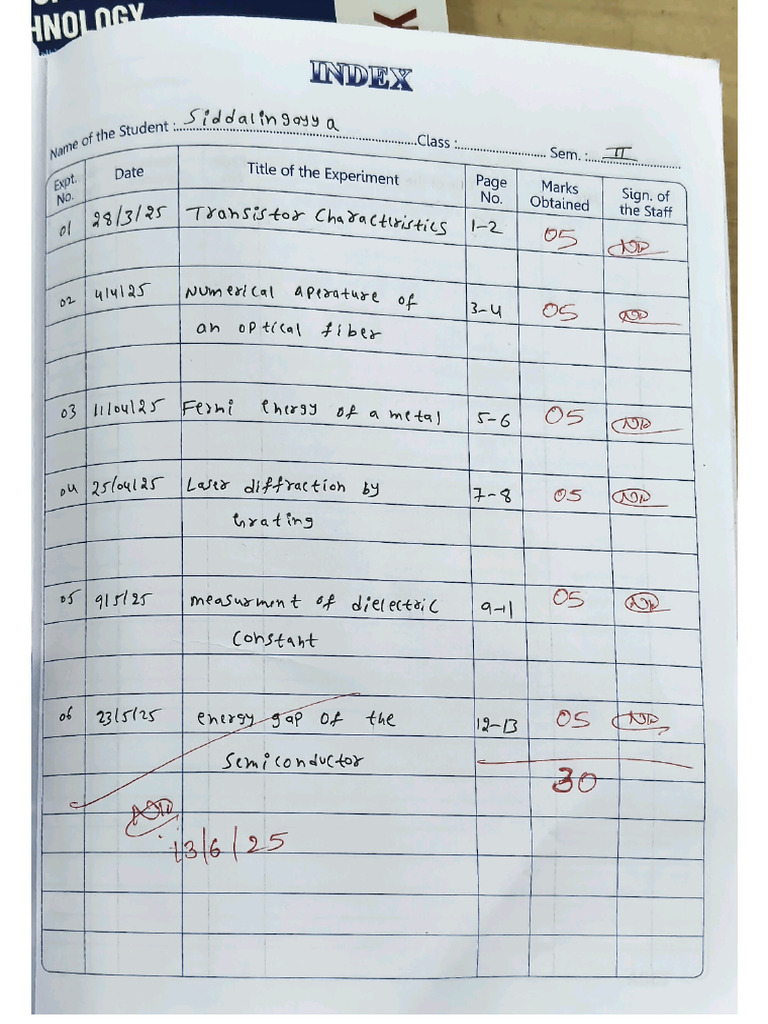 HNOLOGY
K
INDEX
Name of the Student : Siddalingayya Class : Sem. : II
Expt. No. Date Title of the Experiment Page No. Marks Obtained Sign. of the Staff
01 28/3/25 Transistor Characteristics 1-2 05
02 4/4/25 Numerical aperature of 3-4 05
an optical fiber
03 11/04/25 Fermi energy of a metal 5-6 05
04 25/04/25 Laser diffraction by 7-8 05
Grating
05 9/5/25 measurment of dielectric 9-11 05
Constant
06 23/5/25 energy gap of the 12-13 05
Semiconductor
30
13/6/25